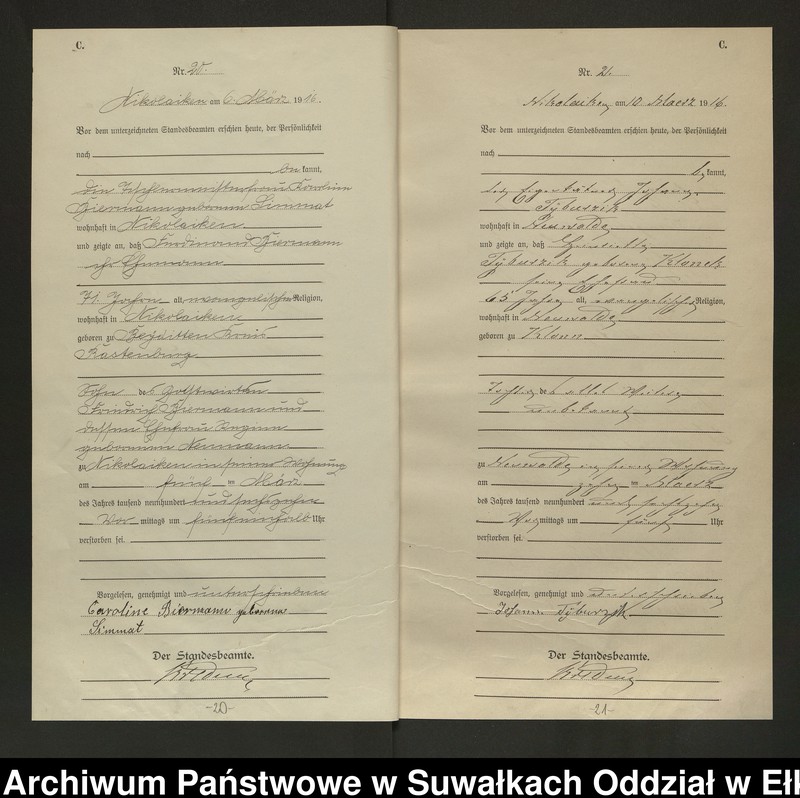 C.
Nr. 20.
Nikolaiken am 6. März 1916.
Vor dem unterzeichneten Standesbeamten erschien heute, der Persönlichkeit
nach
be kannt,
die Fischermeisterfrau Karoline
Biermann geborene Simmat
wohnhaft in Nikolaiken
und zeigte an, daß Ferdinand Biermann
ihr Ehemann
71 Jahre alt, evangelischer Religion,
wohnhaft in Nikolaiken
geboren zu Kreis
Rastenburg
Sohn des Gastwirten
Friedrich Biermann und
dessen Ehefrau Regine
geborenen Neumann
zu Nikolaiken in seiner Wohnung
am fünf ten März
des Jahres tausend neunhundert und sechszehn
Vor mittags um fünfeinhalb Uhr
verstorben sei.
Vorgelesen, genehmigt und unterschrieben
Caroline Biermann geborene
Simmat
Der Standesbeamte.
-20-
C.
Nr. 21.
Nikolaiken am 10. Maerz 1916.
Vor dem unterzeichneten Standesbeamten erschien heute, der Persönlichkeit
nach
be kannt,
der Eigenkätner Johann
wohnhaft in Neuwalde
und zeigte an, daß
geborene
seine Ehefrau
65 Jahre alt, evangelischer Religion,
wohnhaft in Neuwalde
geboren zu
Tochter des alles Weitere
unbekannt
zu Neuwalde in seiner Wohnung
am zehn ten Maerz
des Jahres tausend neunhundert und sechszehn
Vor mittags um fünf Uhr
verstorben sei.
Vorgelesen, genehmigt und unterschrieben
Johann
Der Standesbeamte.
-21-
Archiwum Państwowe w Suwałkach Oddział w Ełk